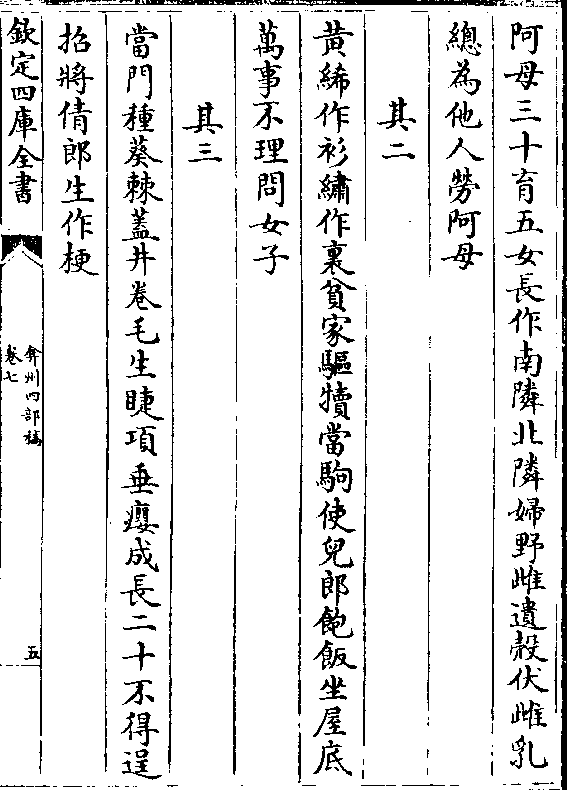 阿母三十育五女長作南隣北隣婦野雌遺殻伏雌乳
總為他人勞阿母
其二
黃絺作衫繡作裏貧家驅犢當駒使兒郎飽飯坐屋底
萬事不理問女子
其三
當門種葵棘蓋井卷毛生睫項垂癭成長二十不得逞
招將倩郎生作梗
欽定四庫全書
弇州四部稿
卷七
五